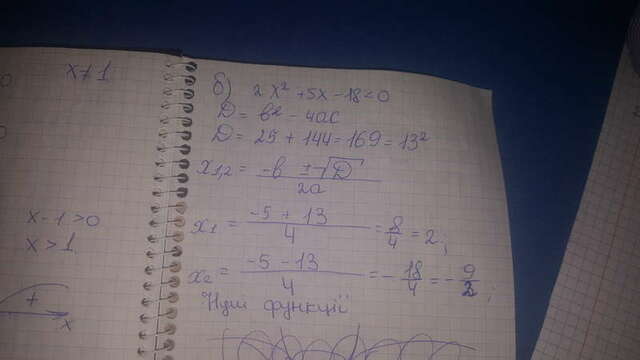 x ≠ 1
x - 1 > 0
x > 1
+
x
б) 2x² + 5x - 18 < 0
D = b² - 4ac
D = 25 + 144 = 169 = 13²
x₁,₂ = (-b ± √D) / 2a
x₁ = (-5 + 13) / 4 = 8/4 = 2;
x₂ = (-5 - 13) / 4 = - 18/4 = - 9/2;
Нулі функції